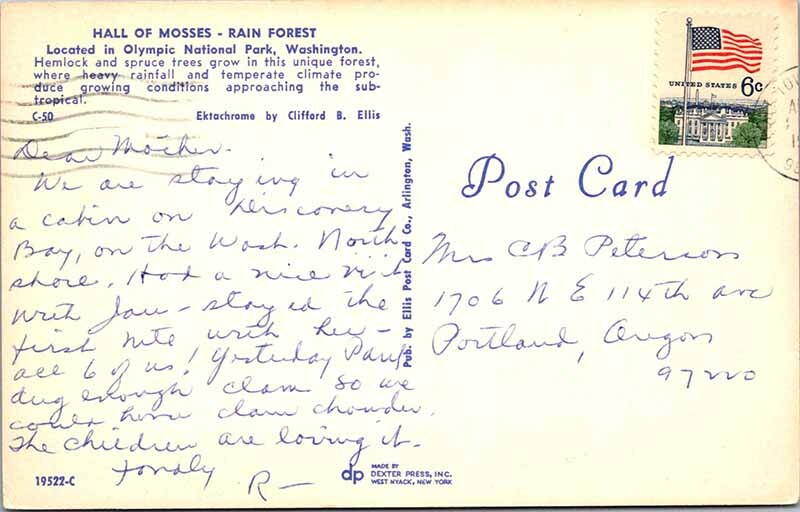 HALL OF MOSSES - RAIN FOREST
Located in Olympic National Park, Washington.
Hemlock and spruce trees grow in this unique forest,
where heavy rainfall and temperate climate pro-
duce growing conditions approaching the sub-
tropical.
C-50
Ektachrome by Clifford B. Ellis
Dear Mother-
We are staying in
a cabin on Discovery
Bay, on the Wash. North
shore. Had a nice visit
with Jan - stayed the
first nite with her -
all 6 of us! Yesterday Paul
dug enough clams so we
could have clam chowder.
The children are loving it.
Fondly
R -
19522-C
Pub. by Ellis Post Card Co., Arlington, Wash.
dp
MADE BY
DEXTER PRESS, INC.
WEST NYACK, NEW YORK
UNITED STATES 6c
Post Card
Mrs C B Peterson
1706 N E 114th ave
Portland, Oregon
97220